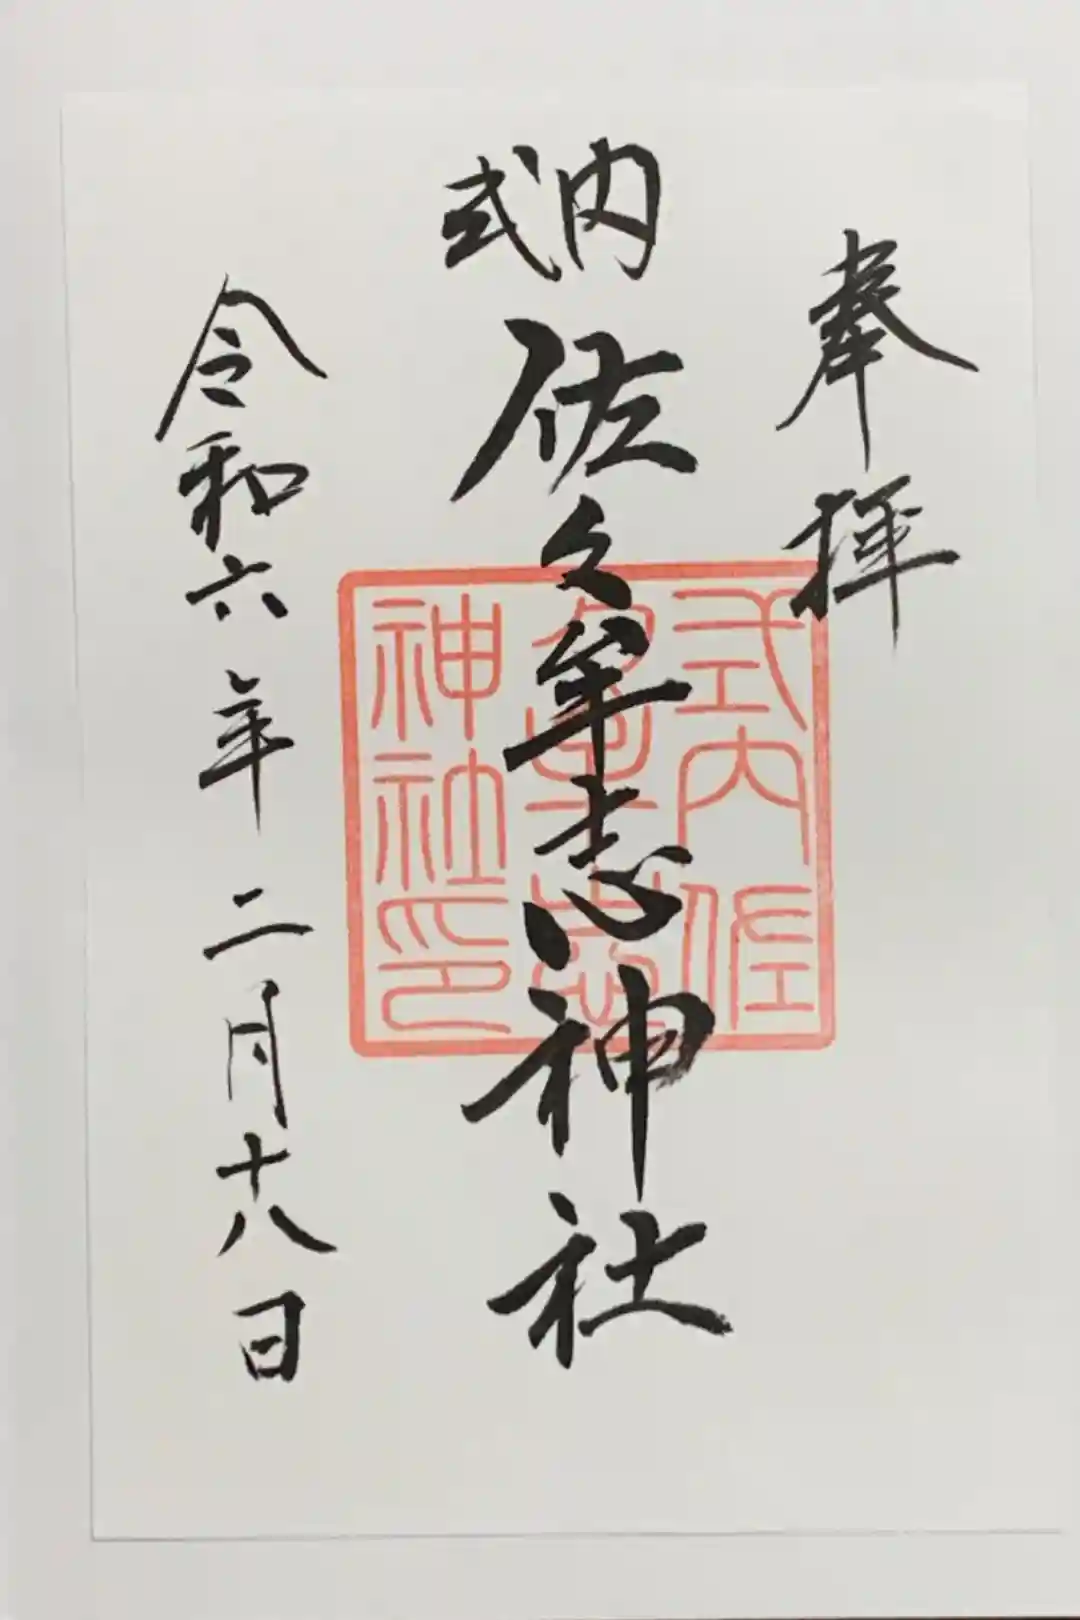 奉拝
式内
佐々牟志神社
令和六年二月十八日
式内佐
神社印